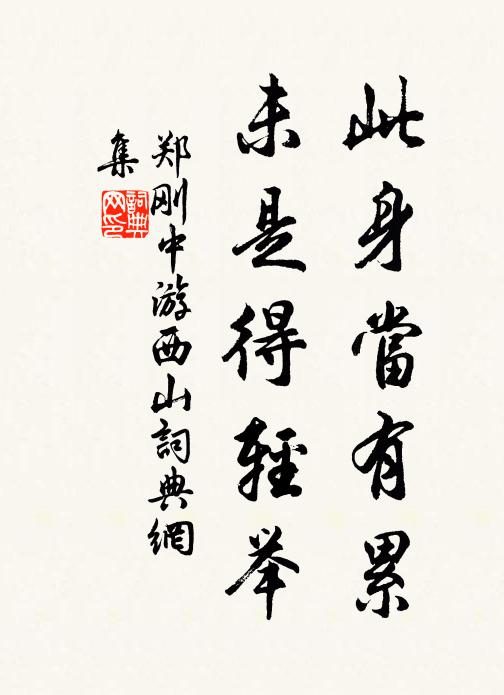 此身當有累
未是得輕举
郑刚中游西山詞典網
集
詞典网印